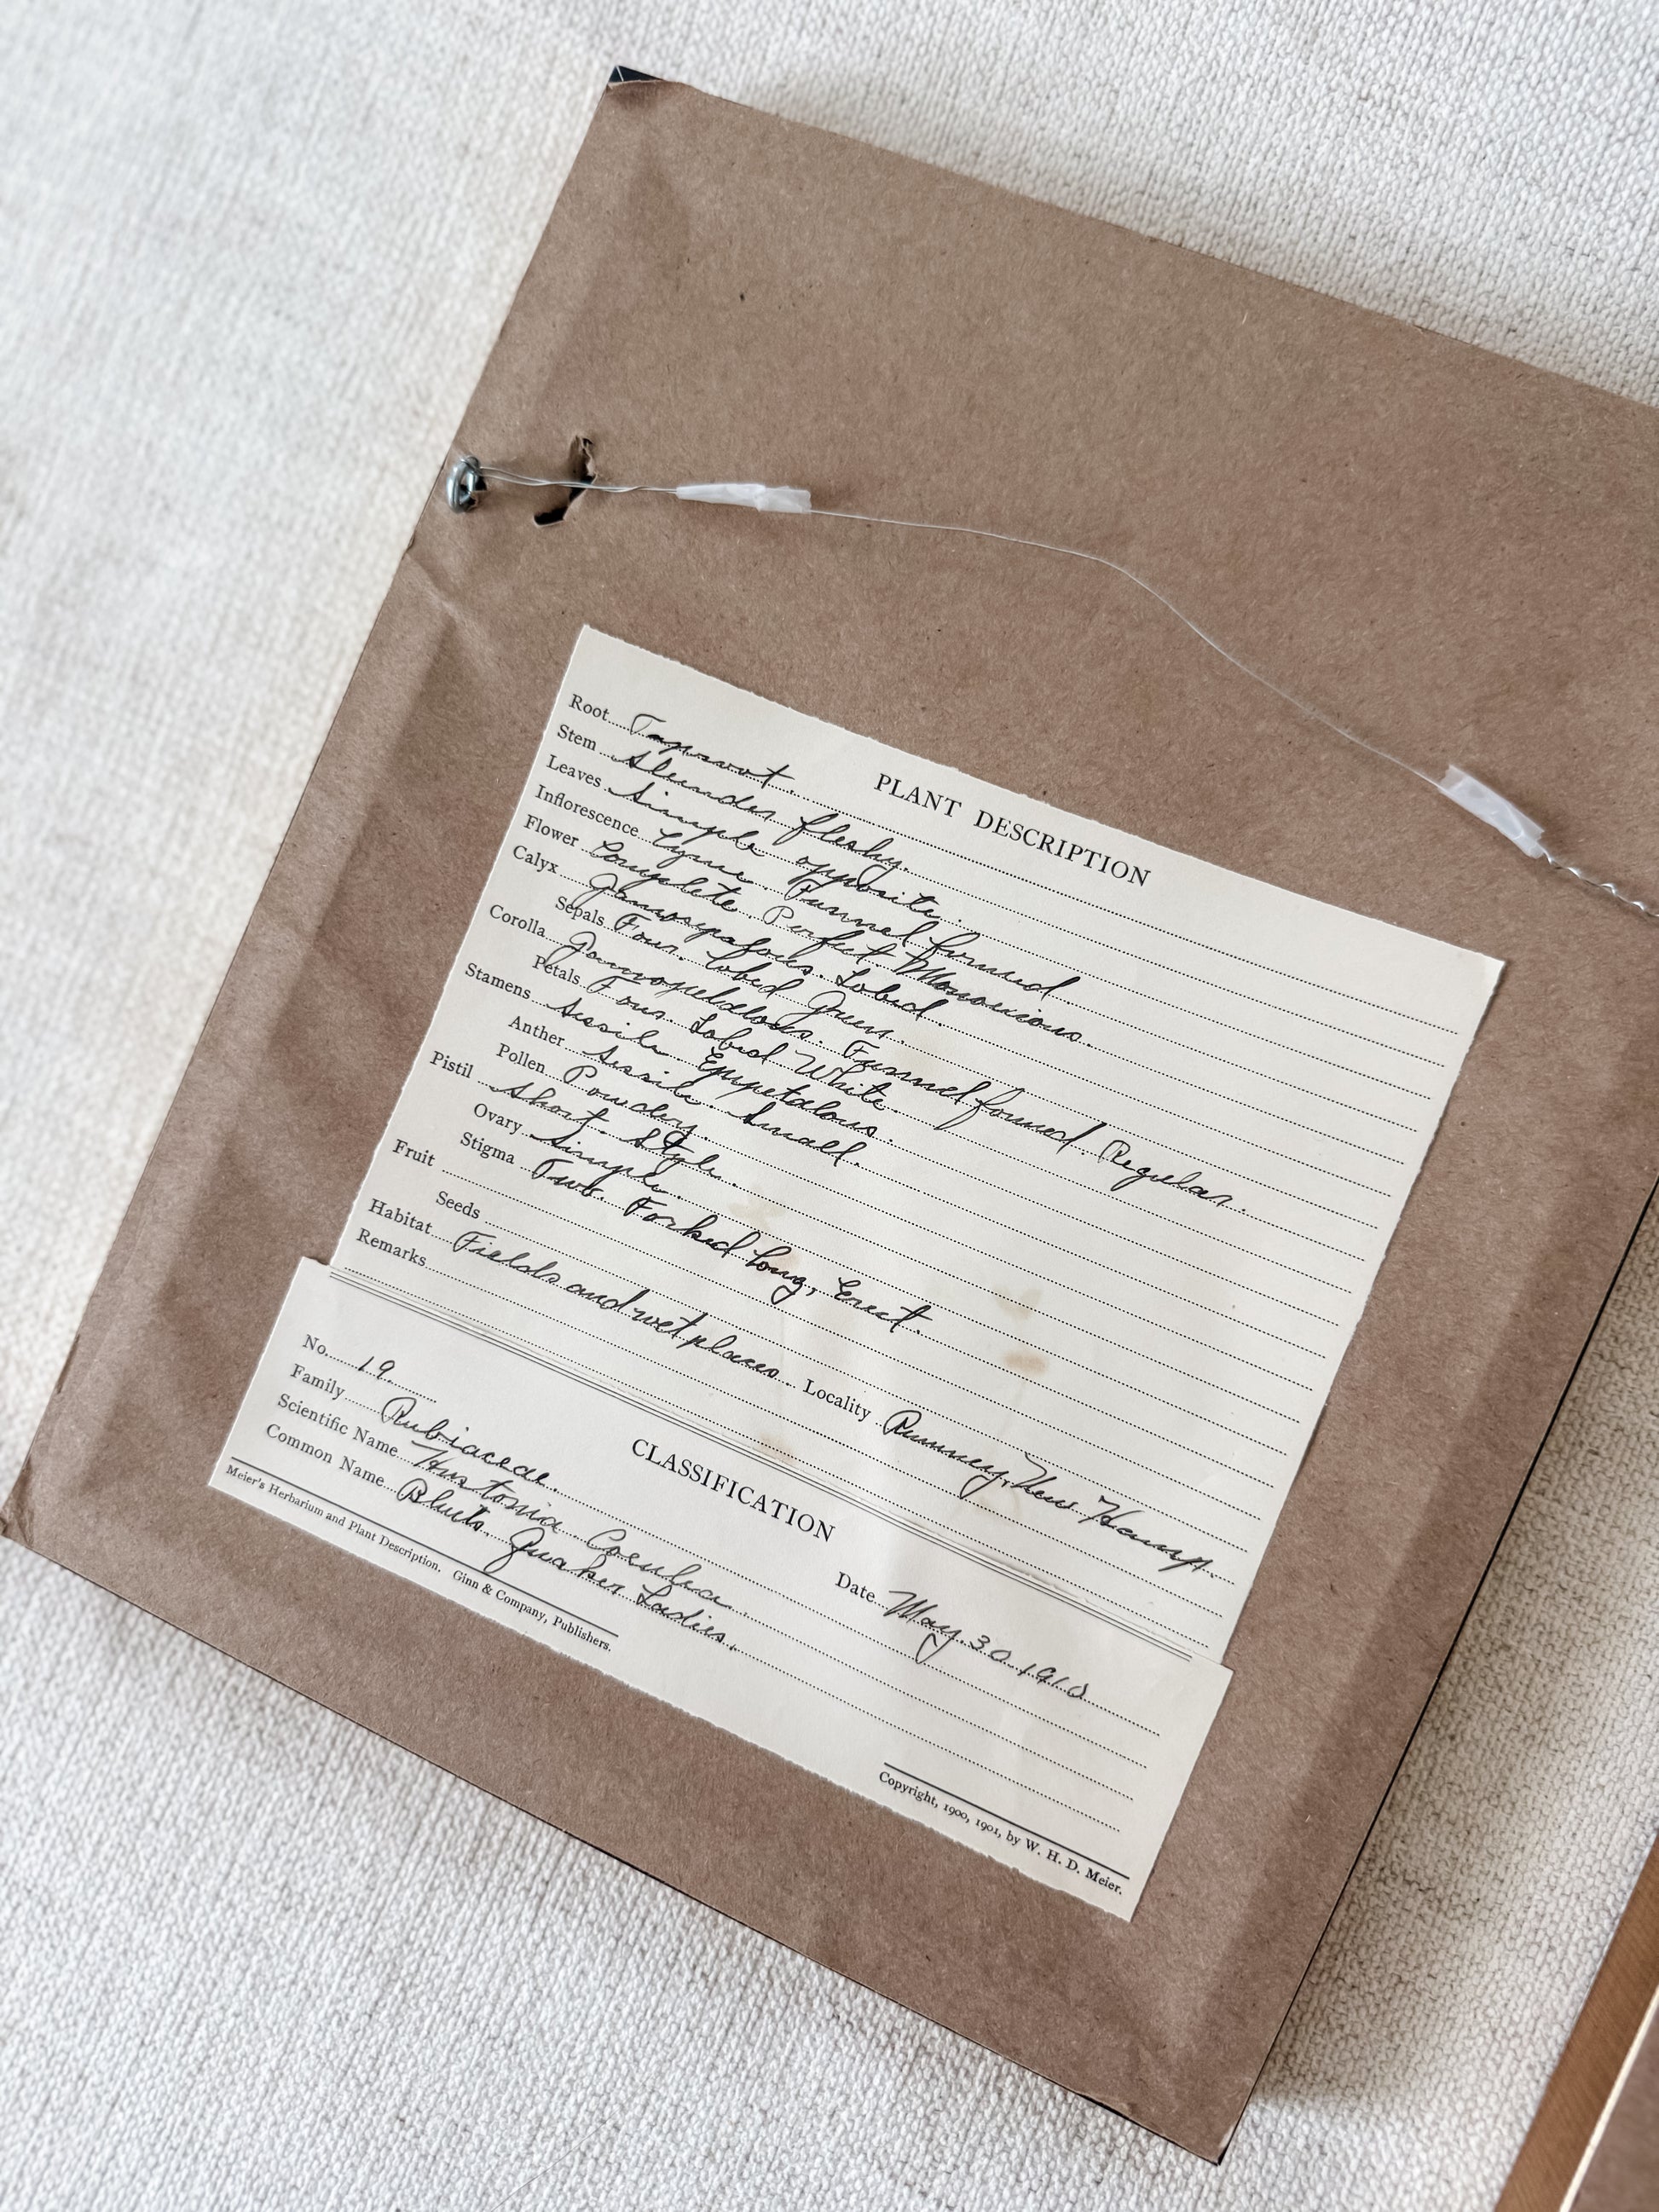 PLANT DESCRIPTION
Root Taproot.
Stem Slender fleshy.
Leaves Simple opposite.
Inflorescence Cyme. Funnel formed.
Flower Complete. Perfect Monoecious.
Calyx Gamosepalous. Lobed.
Sepals Four. Lobed Green.
Corolla Gamopetalous. Funnel formed. Regular.
Petals Four. Lobed White.
Stamens Sessile Epipetalous.
Anther Sessile. Small.
Pollen Powdery.
Pistil Short. Style.
Ovary Simple.
Stigma Two. Forked Long, Erect.
Fruit
Seeds
Habitat Fields and wet places. Locality Rumney, New Hamp.
Remarks
CLASSIFICATION
No. 19. Date May 30 1910
Family Rubiaceae.
Scientific Name Hustonia Coerulea.
Common Name Bluets. Quaker Ladies.
Meier's Herbarium and Plant Description. Ginn & Company, Publishers. Copyright, 1900, 1901, by W. H. D. Meier.